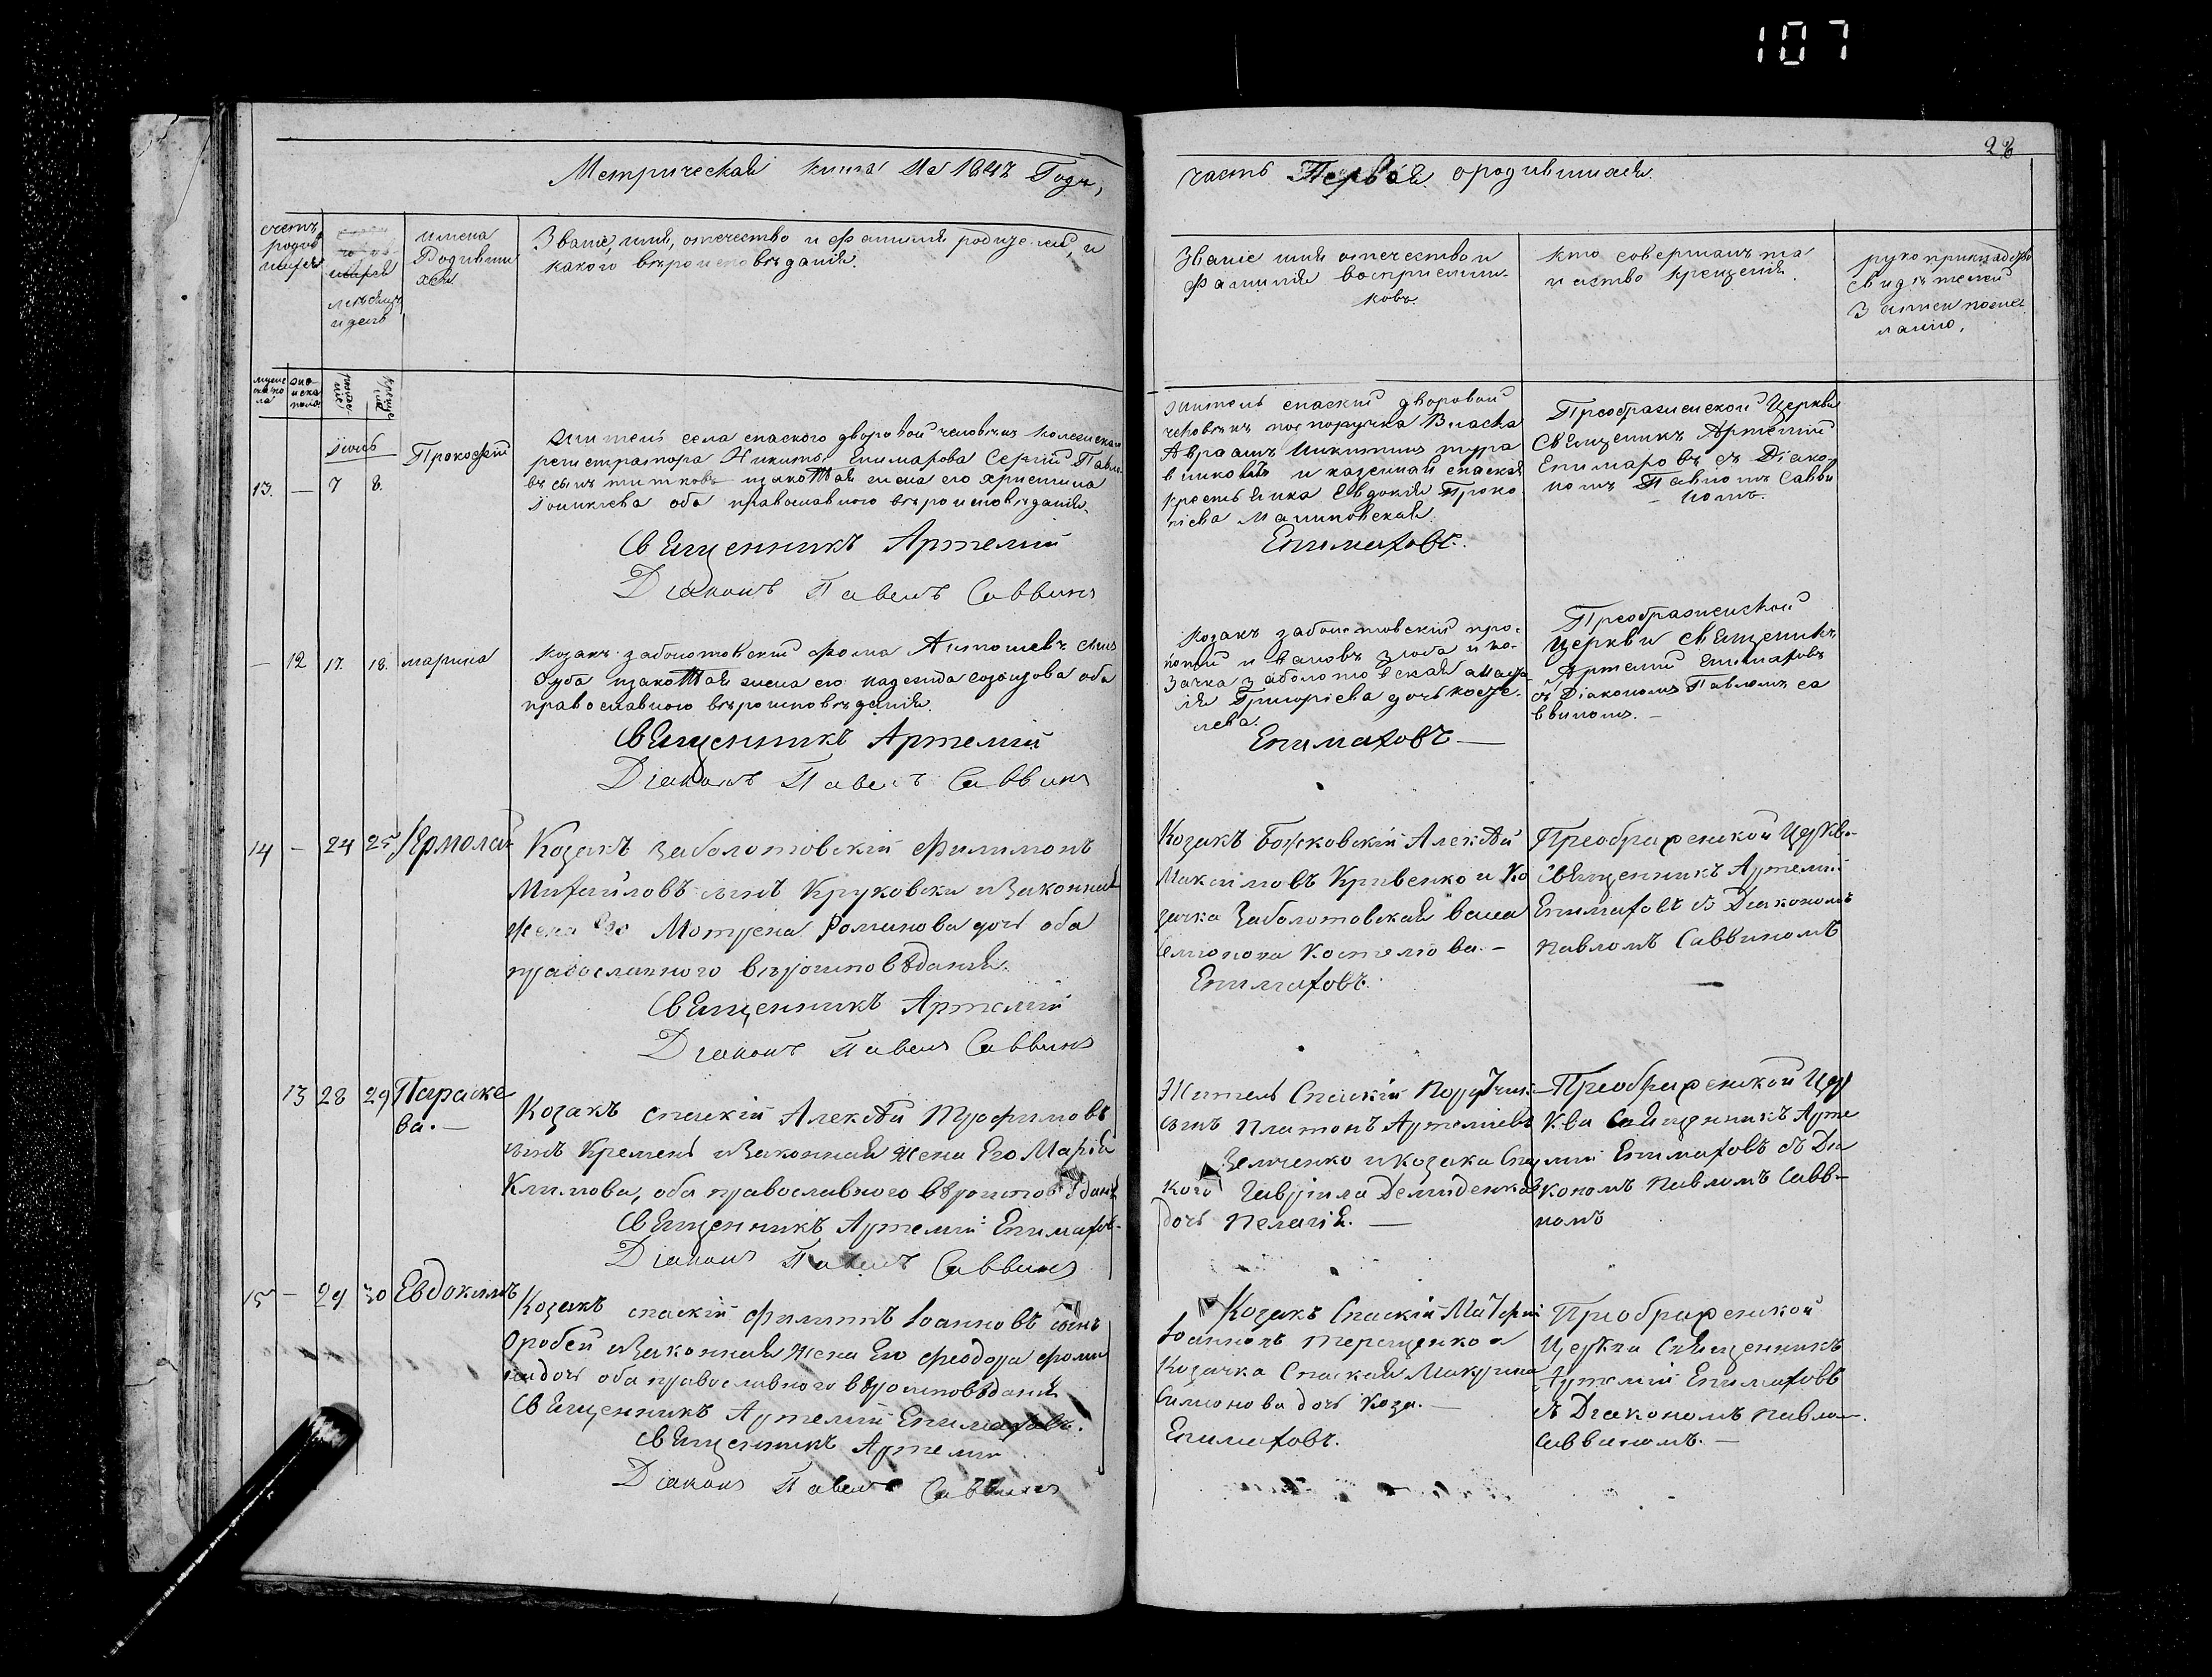 107
28
Метрическая книга На 184 Годъ,
часть Первая о родившихся.
счетъ
родив
шихся
месяцъ
и день
имена
Родивши
хся
Званіе, имя, отечество и фамилія родителей, и
какого вѣроисповѣданія.
Званіе имя отечество и
фамилія воспріемни-
ковъ.
кто совершалъ та
инство крещенія.
рукоприкладство
свидѣтелей
записи по же
ланію.
муже
ска по
ла
же
нска
пола
рожде
нія
креще
нія
13. — 7 8. Прокофій
житель села спаского дворовой человѣкъ колежскаго
регистратора Никиты Епимахова Сергій Павло
въ сынъ и законная жена его христина
оба православного вѣроисповѣданія.
Священникъ Артемій
Діаконъ Павелъ Саввинъ
житель спаский дворовой
человѣкъ поручика Власа
Авраамъ Никитинъ
и казенная спаская
крестьянка Евдокія Проко
піева Малиновская.
Епимаховъ.
Преображенской Церкви
Священикъ Артемий
Епимаховъ съ Діако
номъ Павломъ Савви
номъ.
— 12 17. 18. марина
козакъ заболотовский фома Антоновъ сынъ
зуба и законная жена его надежда созонова оба
православного вѣроисповѣданія.
Священникъ Артемій
Діаконъ Павелъ Саввинъ
козакъ заболотовский про-
копий ивановъ зюба и ко-
зачка заболотовская
Григорієва дочь косте-
лева.
Епимаховъ —
Преображенской
церкви Священикъ
Артемий Епимаховъ
съ Діакономъ Павломъ са
ввиномъ. —
14 — 24 25 Ермолай
Козакъ заболотовскій Филимонъ
Михайловъ сынъ Круковски и Законная
жена Его Мотрена Романова дочь оба
православного вѣроисповѣданія.
Священникъ Артемій
Діаконъ Павелъ Саввинъ
Козакъ Божковскій Алексѣй
Максимовъ Кривенко и Ко
зачка Заболотовская васса
семионова Костелюва. —
Епимаховъ.
Преображенской Церкви
Священникъ Артемій
Епимаховъ съ Діакономъ
Павломъ Саввиномъ
—
13 28 29 Параске
ва. —
Козакъ спаскій Алексѣй Трофимовъ
сынъ Кремень и Законная жена Его Марія
Климова, оба православного вѣроисповѣданія
Священникъ Артемій Епимаховъ.
Діаконъ Павелъ Саввинъ
Житель Спаскій Поручикъ
сынъ Платонъ Артеміевъ
Земченко и козака Спас
кого Гавріила Демиденка
дочь Пелагія. —
Преображенской Цер
Кви Священникъ Арте
мий Епимаховъ съ Діа
кономъ Павломъ Савви-
номъ
15 — 29 30 Евдокимъ
Козакъ спаскій филиппъ Іоанновъ сынъ
Оробей и Законная жена Его феодора фоми
на дочь оба православного вѣроисповѣданія
Священникъ Артемий Епимаховъ.
Священникъ Артемій
Діаконъ Павелъ Саввинъ
Козакъ Спаскій Матфій
Іоанновъ терещенко и
Козачка Спаская Макрина
Симонова дочь Коза. —
Епимаховъ.
Преображенской
Церкви Священникъ
Артемій Епимаховъ
съ Діакономъ Павлом.
Саввиномъ. —